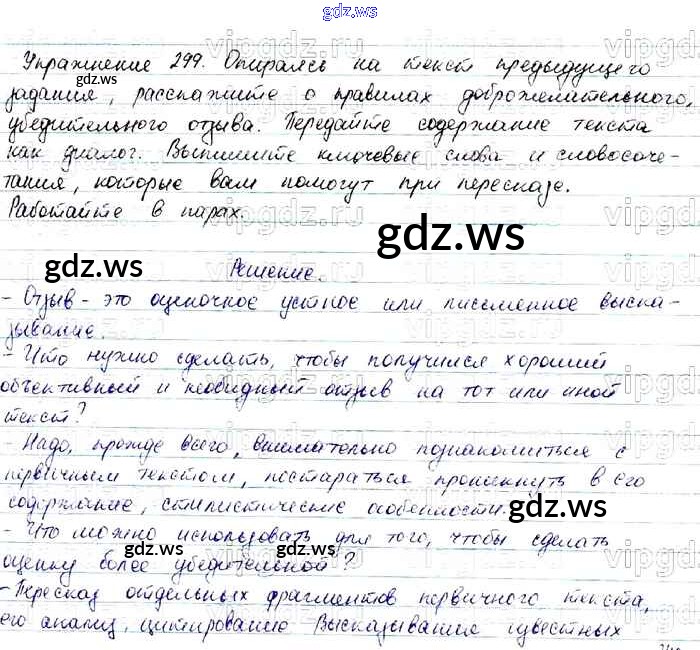 gdz.ws
Упражнение 299. Опираясь на текст предыдущего
задания, расскажите о правилах доброжелательного,
убедительного отзыва. Передайте содержание текста
как диалог. Выпишите ключевые слова и словосоче-
тания, которые вам помогут при пересказе.
Работайте в парах.
gdz.ws
gdz.ws
Решение.
- Отзыв - это оценочное устное или письменное выска-
зывание.
- Что нужно сделать, чтобы получился хороший
объективный и необидный отзыв на тот или иной
текст?
- Надо, прежде всего, внимательно познакомиться с
первичным текстом, постараться проникнуть в его
содержание, стилистические особенности.
- Что можно использовать для того, чтобы сделать
оценку более убедительной?
- Пересказ отдельных фрагментов первичного текста,
его анализ, цитирование высказывания известных